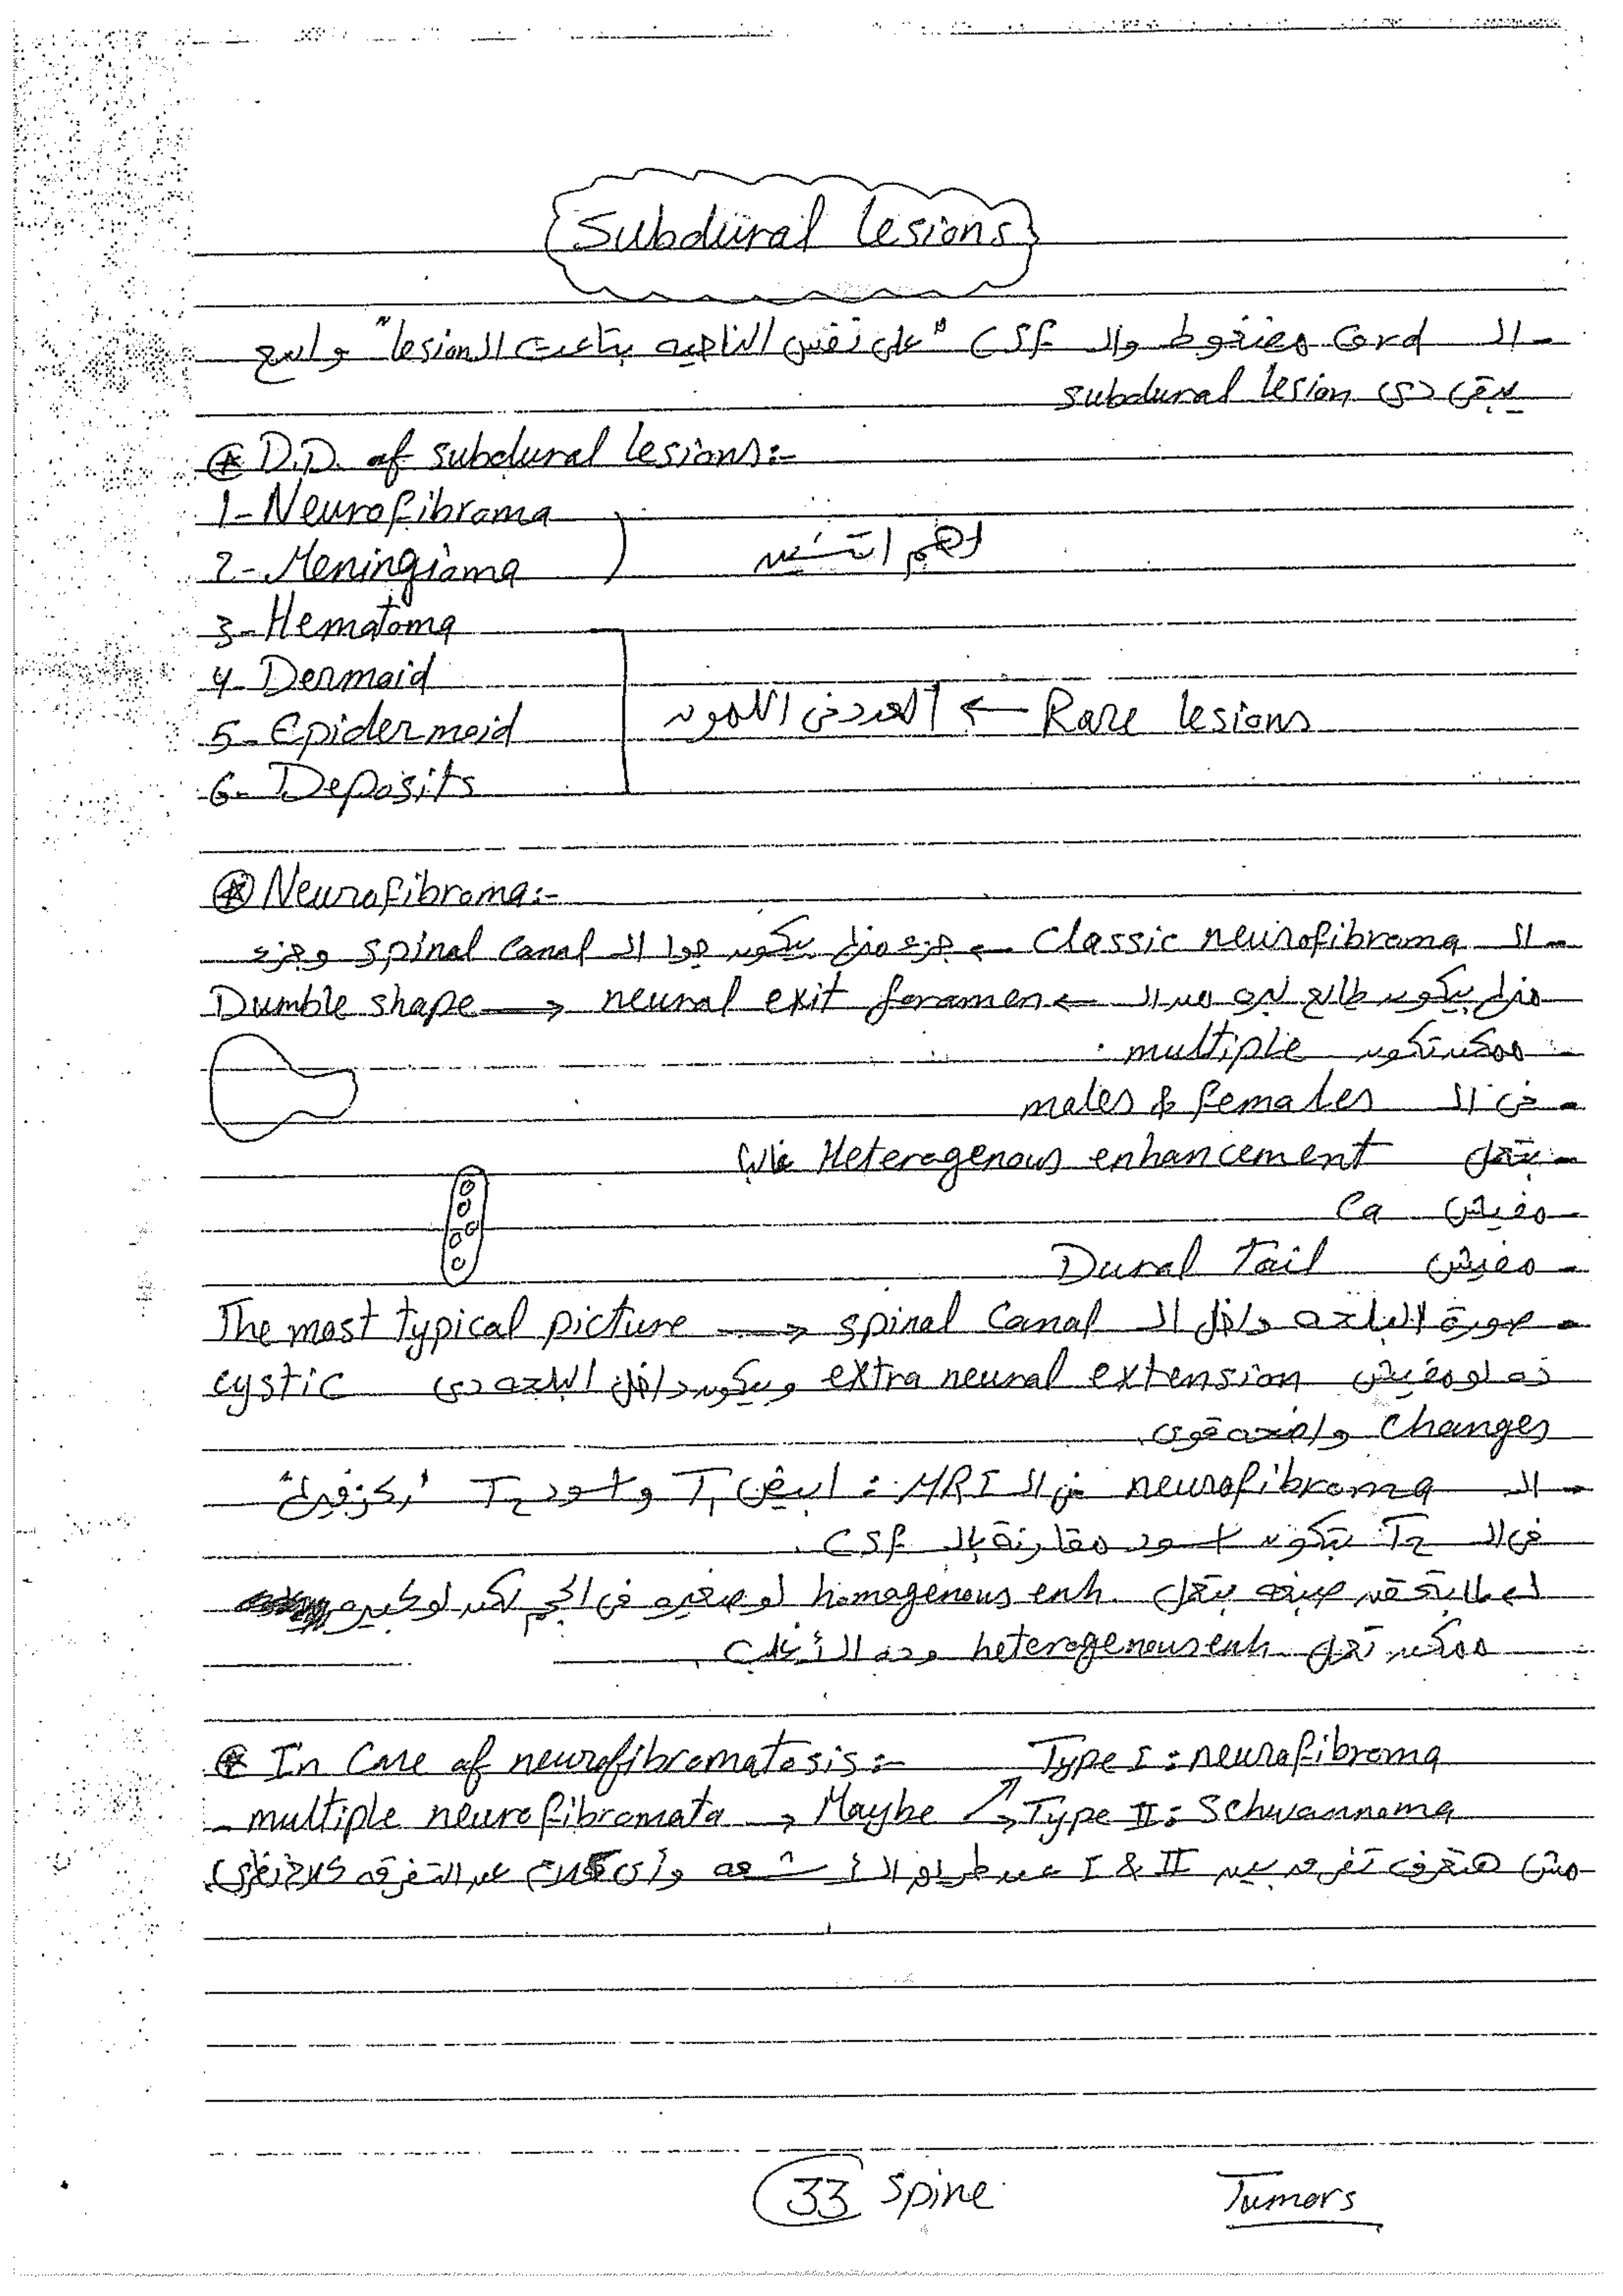 Subdural lesions
- الـ Cord مضغوط والـ CSF "على نفس الناحيه بتاعت الـ lesion" واسع
يبقى دى subdural lesion
* D.D. of subdural lesions:-
1- Neurofibroma
2- Meningioma
اهم اتنين
3- Hematoma
4- Dermoid
5- Epidermoid
Rare lesions ←
6- Deposits
* Neurofibroma:-
- الـ Classic neurofibroma ← جزء منها بيكون جوا الـ spinal Canal وجزء
منها بيكون طالع بره من الـ neural exit foramen → Dumble shape
- ممكن تكون multiple.
- فى الـ males & females
- بتعمل Heterogenous enhancement غالبا
- مفيش Ca
- مفيش Dural Tail
- صورة البلحه داخل الـ spinal Canal → The most typical picture
ده لو مفيش extra neural extension وبيكون داخل البلحه دى cystic
changes واضحه قوى.
- الـ neurofibroma فى الـ MRI : ابيض T1 و اسود T2 "ركز فيها"
فى الـ T2 بتكون اسود مقارنة بالـ CSF.
لما بتحقن صبغه بتعمل homogenous enh. لو صغيره فى الحجم لكن لو كبيره
ممكن تعمل heterogenous enh وده الأغلب.
* In Case of neurofibromatosis:- Type I : neurofibroma
- multiple neurofibromata → Maybe → Type II : Schwannoma
مش هتعرف تفرق بين I & II عن طريق الأشعه وأى كلام عن التفرقه كلام نظرى.
33 Spine Tumors